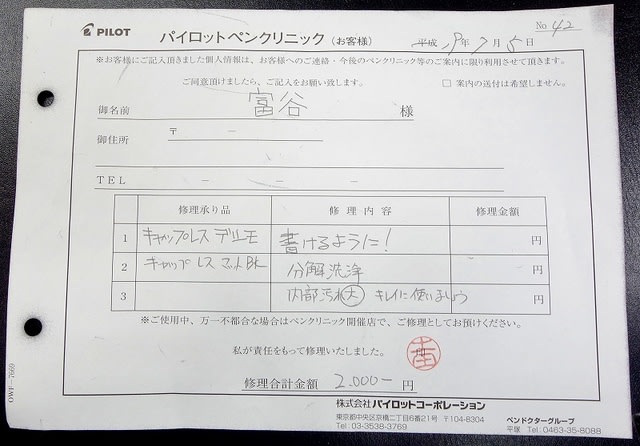 No 42
PILOT パイロットペンクリニック (お客様) 平成 19年 7月 5日
※お客様にご記入頂きました個人情報は、お客様へのご連絡・今後のペンクリニック等のご案内に限り利用させて頂きます。
ご同意頂けましたら、ご記入をお願い致します。 □ 案内の送付は希望しません。
御名前 富谷 様
御住所 〒 －
TEL － － －
修理承り品 修理内容 修理金額
1 キャップレス デシモ 書けるように! 円
2 キャップレス マットBk 分解洗浄 円
3 内部汚れ大 キレイに使いましょう 円
※ご使用中、万一不都合な場合はペンクリニック開催店で、ご修理としてお預けください。
私が責任をもって修理いたしました。
修理合計金額 2.000− 円
株式会社パイロットコーポレーション
東京都中央区京橋二丁目6番21号 〒104-8304
Tel: 03-3538-3769
ペンドクターグループ
平塚 Tel. 0463-35-8088